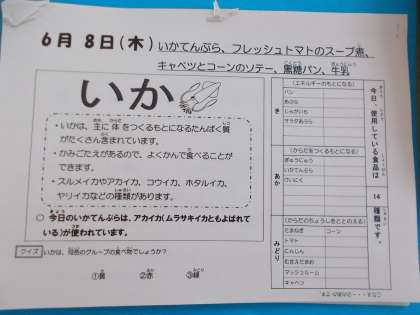 6月 8日(木) いかてんぷら、フレッシュトマトのスープ煮、
キャベツとコーンのソテー、黒糖パン、牛乳
いか
・いかは、主に体をつくるもとになるたんぱく質
がたくさん含まれています。
・かみごたえがあるので、よくかんで食べることが
できます。
・スルメイカやアカイカ、コウイカ、ホタルイカ、
ヤリイカなどの種類があります。
○ 今日のいかてんぷらは、アカイカ(ムラサキイカともよばれて
いる)が使われています。
クイズ いかは、何色のグループの食べ物でしょうか?
①黄 ②赤 ③緑
今日、使用している食品は 14 種類です。
き
(エネルギーのもとになる)
パン
あぶら
じゃがいも
サラダあぶら
あか
(からだをつくるもとになる)
ぎゅうにゅう
いかてんぷら
けいにく
みどり
(からだのちょうしをととのえる)
たまねぎ コーン
トマト
にんじん
むきえだまめ
マッシュルーム
キャベツ